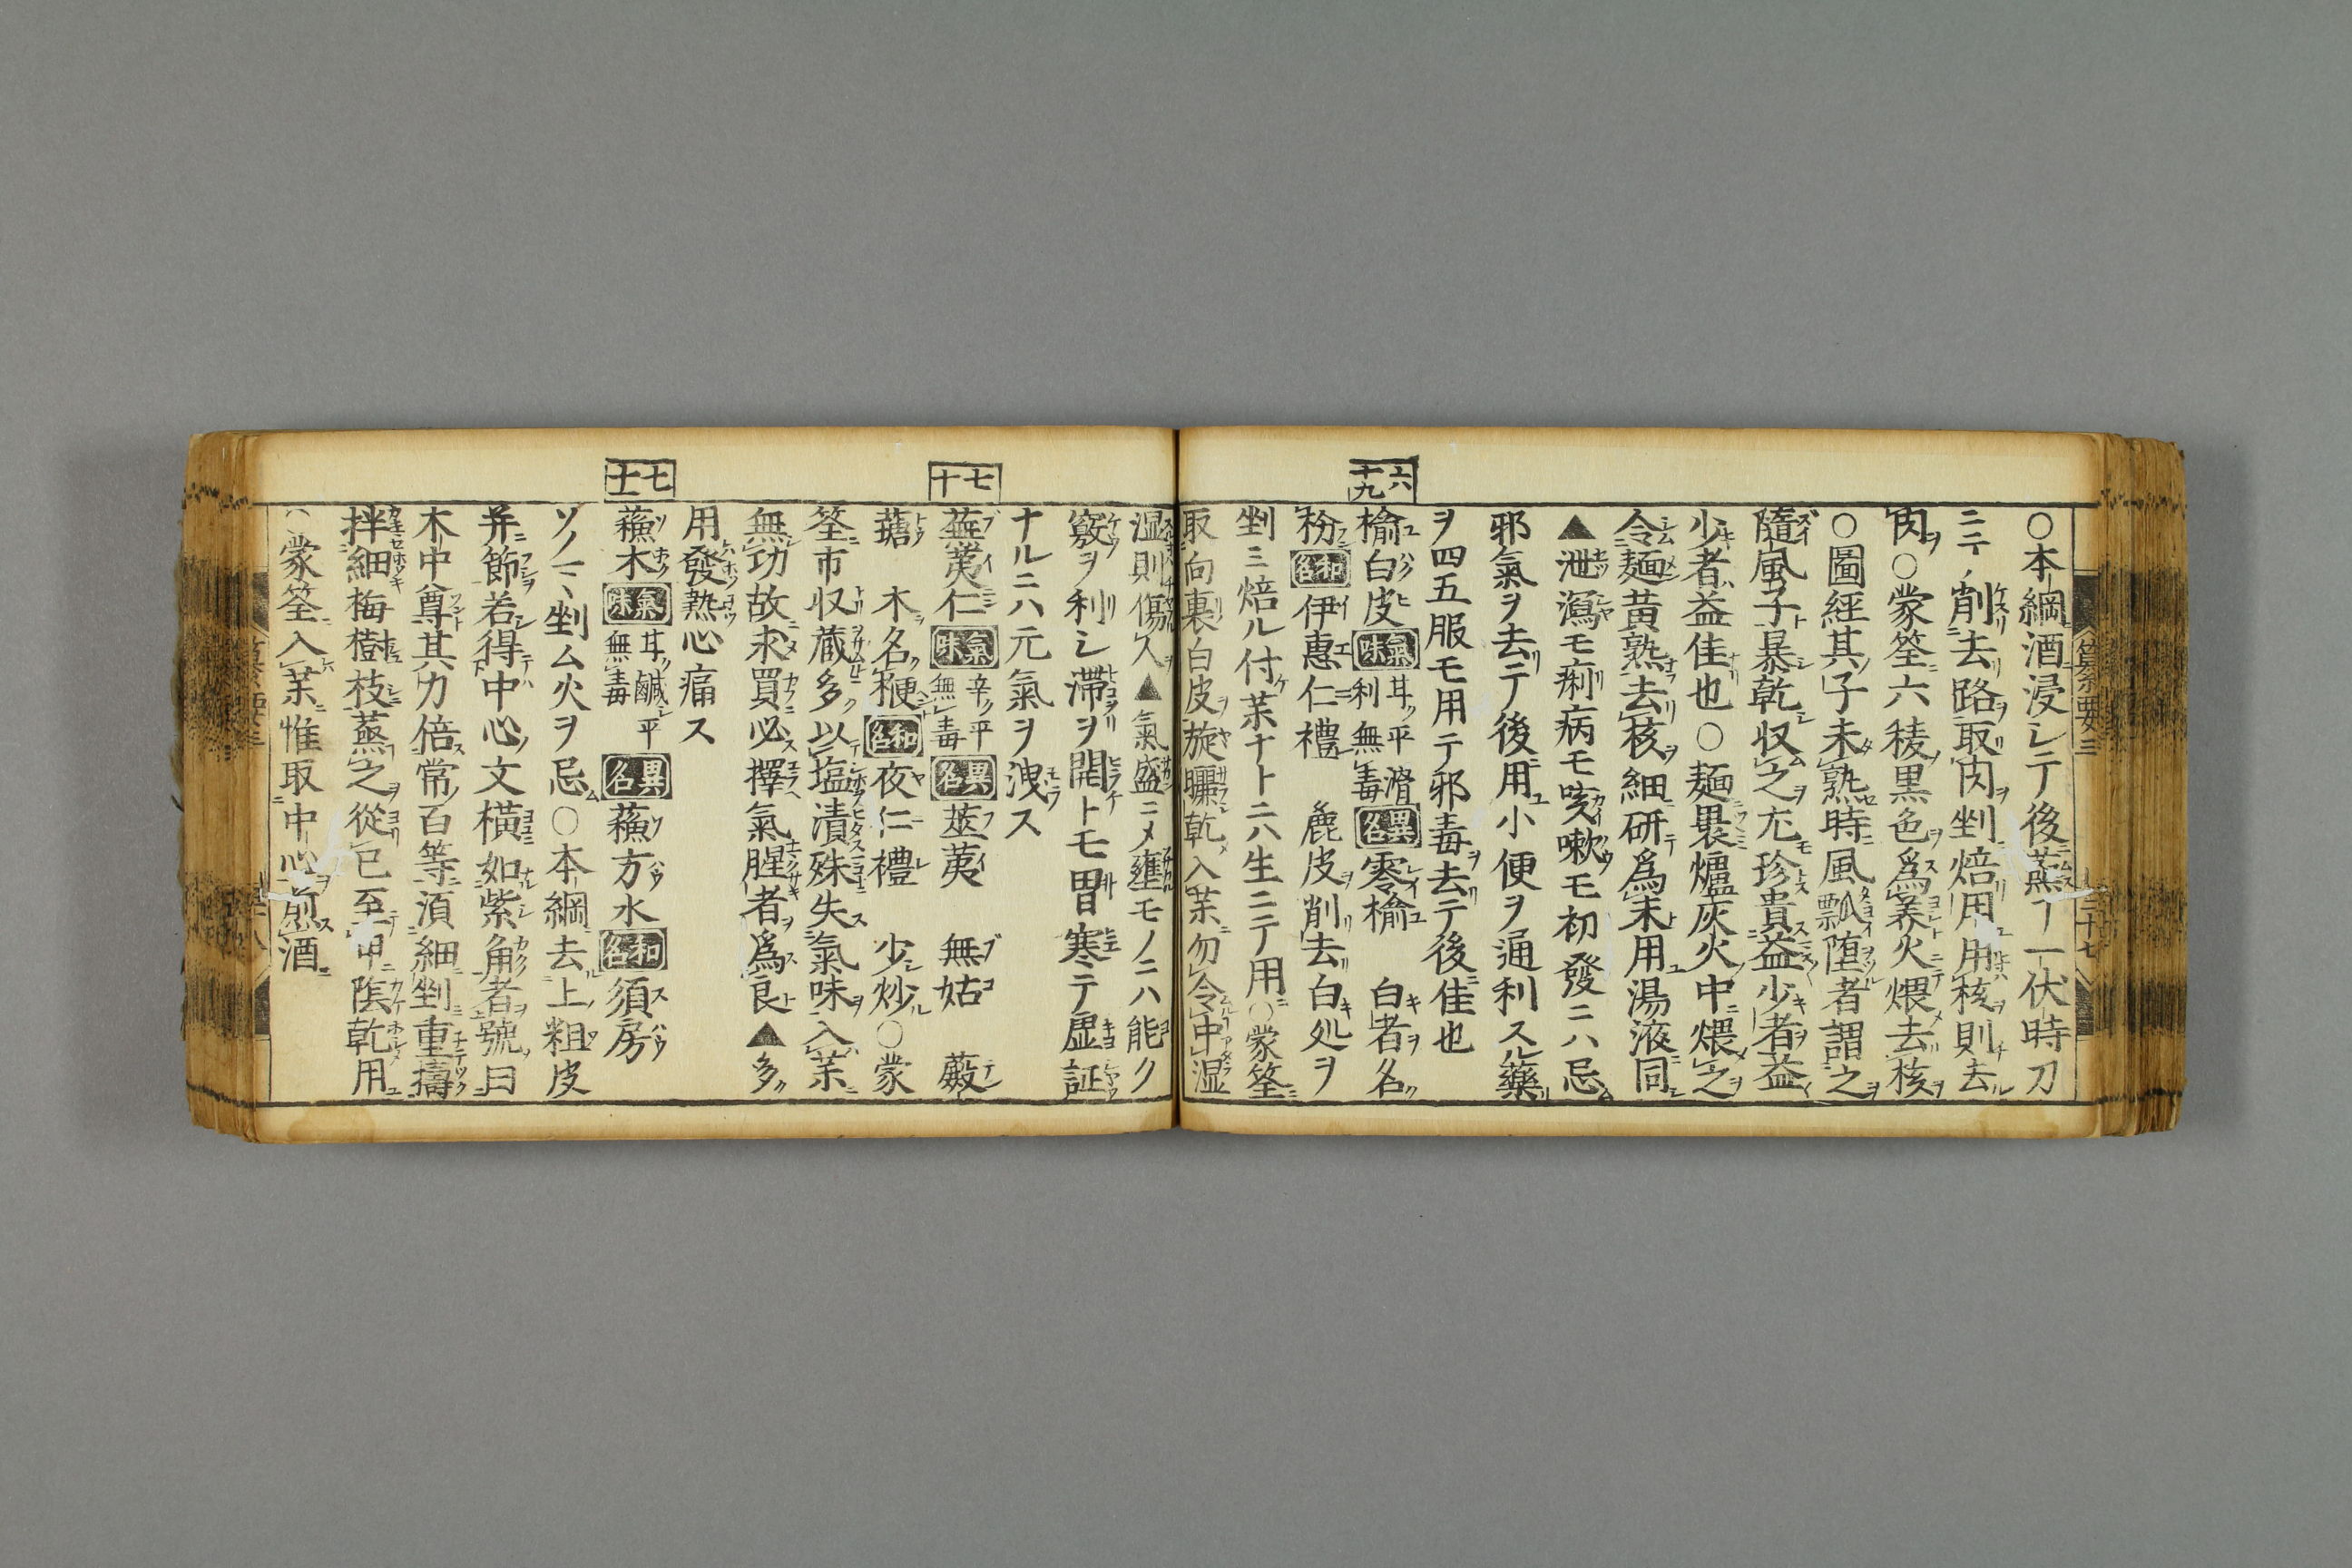 六十九
○本綱酒浸シテ後蒸丁一伏時刀
ニテ削去路取肉剉焙用用核則去
肉○蒙筌六稜黒色爲義火煨去核
○圖經其子未熟時風飄堕者謂之
隨風子暴乾收之尤珍貴益少者益
少者益佳也○麺褁爐灰火中煨之
令麺黄熟去核細研爲末用湯液同
▲泄瀉モ痢病モ咳嗽モ初發ニハ忌
邪氣ヲ去テ後用小便ヲ通利スル藥
ヲ四五服モ用テ邪毒去テ後佳也
楡白皮 氣味 甘平滑利無毒 異名 零楡 白者名
粉 和名 伊惠仁禮 麁皮削去白処ヲ
剉ミ焙ル付茱ナトニハ生ニテ用○蒙筌
取向裏白皮旋曬乾入茱勿令中湿
七十
七十一
湿則傷人▲氣盛ニメ壅モノニハ能ク
竅ヲ利シ滯ヲ開トモ胃寒テ虚証
ナルニハ元氣ヲ洩ス
蕪荑仁 氣味 辛平無毒 異名 莁荑 無姑 蔱
蘠 木名梗 和名 夜仁禮 少炒○蒙
筌市収蔵多以塩漬殊失氣味入茱
無功故求買必擇氣腥者爲良▲多
用發熱心痛ス
蘓木 氣味 甘鹹平無毒 異名 蘓方水 和名 須房
ソノマヽ剉ム火ヲ忌○本綱去上粗皮
并節若得中心文横如紫角者號曰
木中尊其力倍常百等湏細剉重擣
拌細梅樹枝蒸之從巳至申陰乾用
○蒙筌入茱惟取中心煎酒